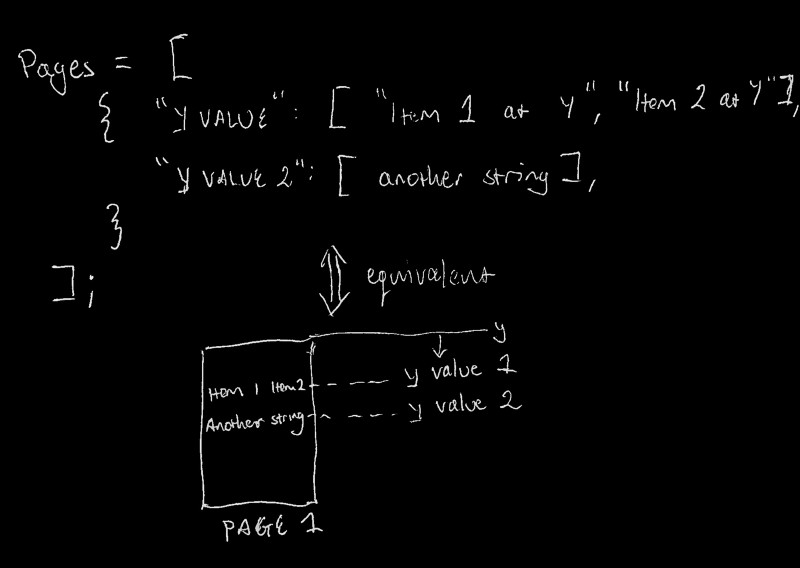 Pages = [
{ "Y VALUE": [ "Item 1 at Y", "Item 2 at Y"],
"Y VALUE 2": [ another string ],
}
];
equivalent
y
Item 1 Item2 y value 1
Another string y value 2
PAGE 1